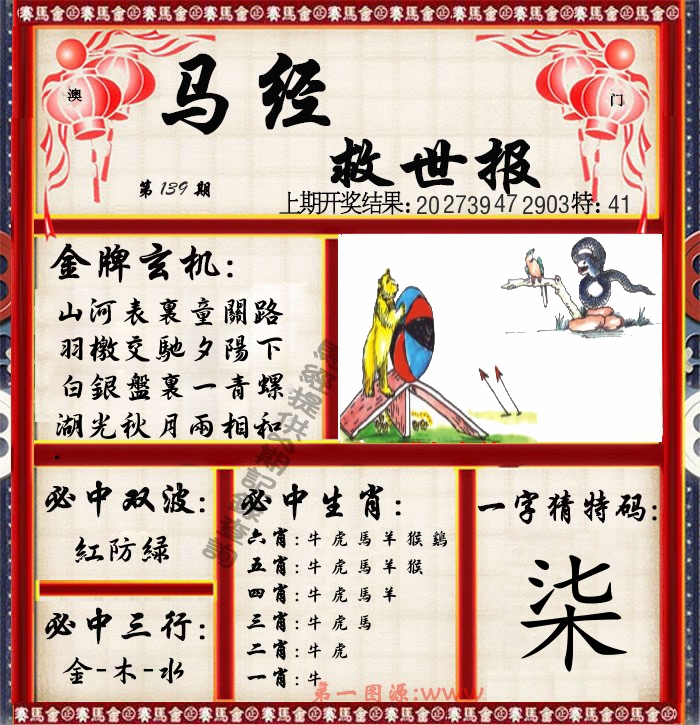 正賽馬會正賽馬會正賽馬會正賽馬會正賽馬會正賽馬會正賽馬會正賽馬會
澳
门
马经
救世报
第139期
上期开奖结果:20 27 39 47 29 03 特:41
金牌玄机:
山河表裏童關路
羽檄交馳夕陽下
白銀盤裏一青螺
湖光秋月兩相和
必中双波:
紅防緑
必中三行:
金-木-水
必中生肖:
六肖:牛虎馬羊猴鷄
五肖:牛虎馬羊猴
四肖:牛虎馬羊
三肖:牛虎馬
二肖:牛虎
一肖:牛
一字猜特码:
柒
第一图源:www